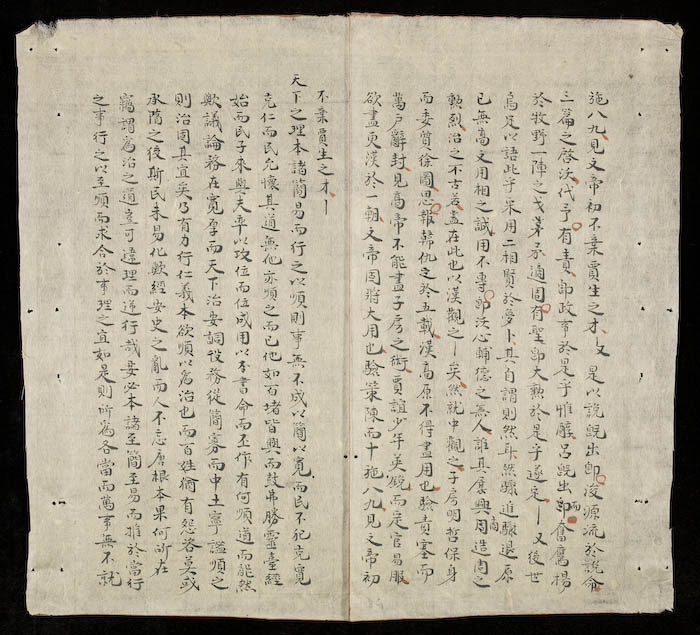 施八九見文帝初不棄賈生之才 又 是以說旣出卽浚源流於說命
三篇之啓沃代予有責卽政事於是乎惟醇呂旣出而卽奮鷹揚
於牧野一陣之戈茅承適固有聖卽大勲於是乎遂定 又後世
烏足以語此乎采用二相賢於夢卜其自謂則然耳然驟進驟退原
已無高文用相之誠用不專卽沃心輔德之無人誰其屢興周造商之
勲烈治之不古若盖在此也以漢觀之 矣然就中觀之子房明哲保身
而委質徐圖思報韓仇之於五載漢高原不得盡用也驗責塞而
萬戶辭封見高帝不能盡子房之術賈誼少年英銳而定官易服
欲盡更漢於一朝文帝固將大用也驗策陳而十施八九見文帝初
不棄賈生之才
天下之理本諸簡易而行之以順則事無不成以簡以寬而民不犯克寬
克仁而民允懷其道無他亦順之而已他如百堵皆興而鼓弗勝靈臺經
始而民子來與夫卒以攻位而位成用以分書命而丕作有何順道而能然
歟議論務在寬厚而天下治安調役務從簡寡而中土寧謐順之
則治固其宜矣乃有力行仁義本欲順以為治也而百姓猶有怨咨莫或
承隋之後斯民未易化歟經安史之亂而人不忘唐根本果何所在
竊謂為治之道豈可違理而逆行哉要必本諸至簡至易而推於當行
之事行之以至順而求合於事理之宜如是則所為各當而萬事無不就